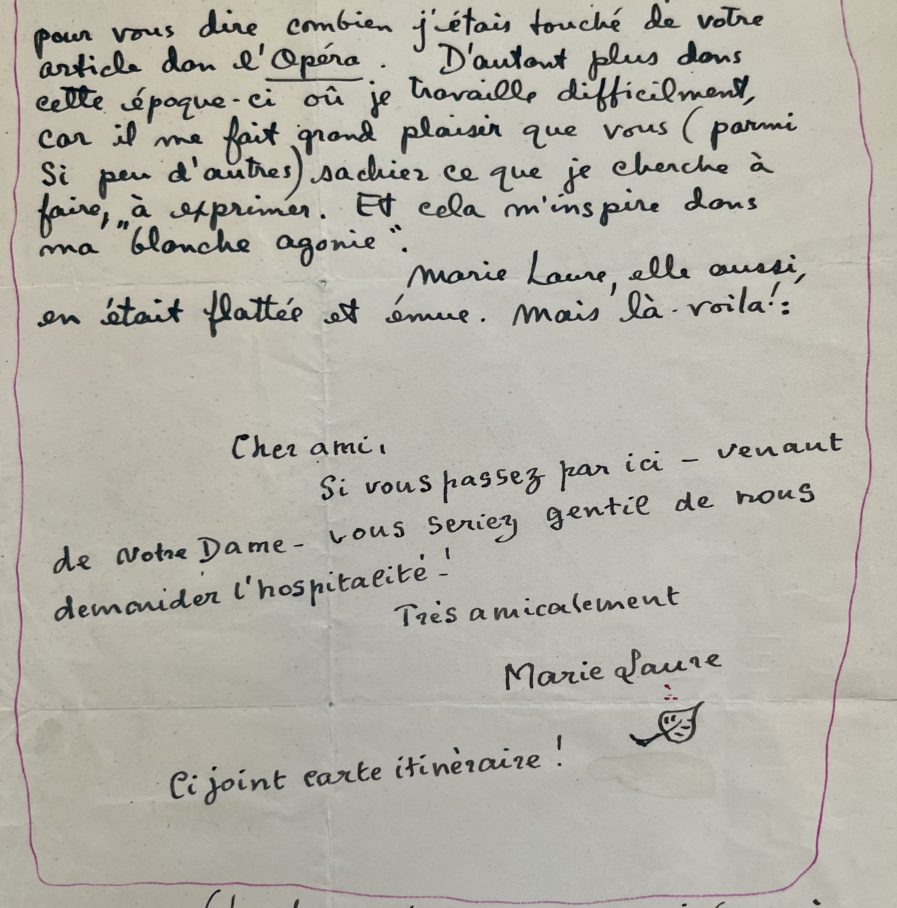 pour vous dire combien j'étais touché de votre
article dan l'Opéra. D'autant plus dans
cette époque-ci où je travaille difficilment,
car il me fait grand plaisir que vous (parmi
si peu d'autres) sachiez ce que je cherche à
faire, à exprimer. Et cela m'inspire dans
ma "blanche agonie".
Marie Laure, elle aussi,
en était flattée et émue. Mais là-voila!:
Cher ami,
Si vous passez par ici – venant
de Notre Dame – vous seriez gentil de nous
demander l'hospitalité!
Très amicalement
Marie Laure
Ci joint carte itinèraire!